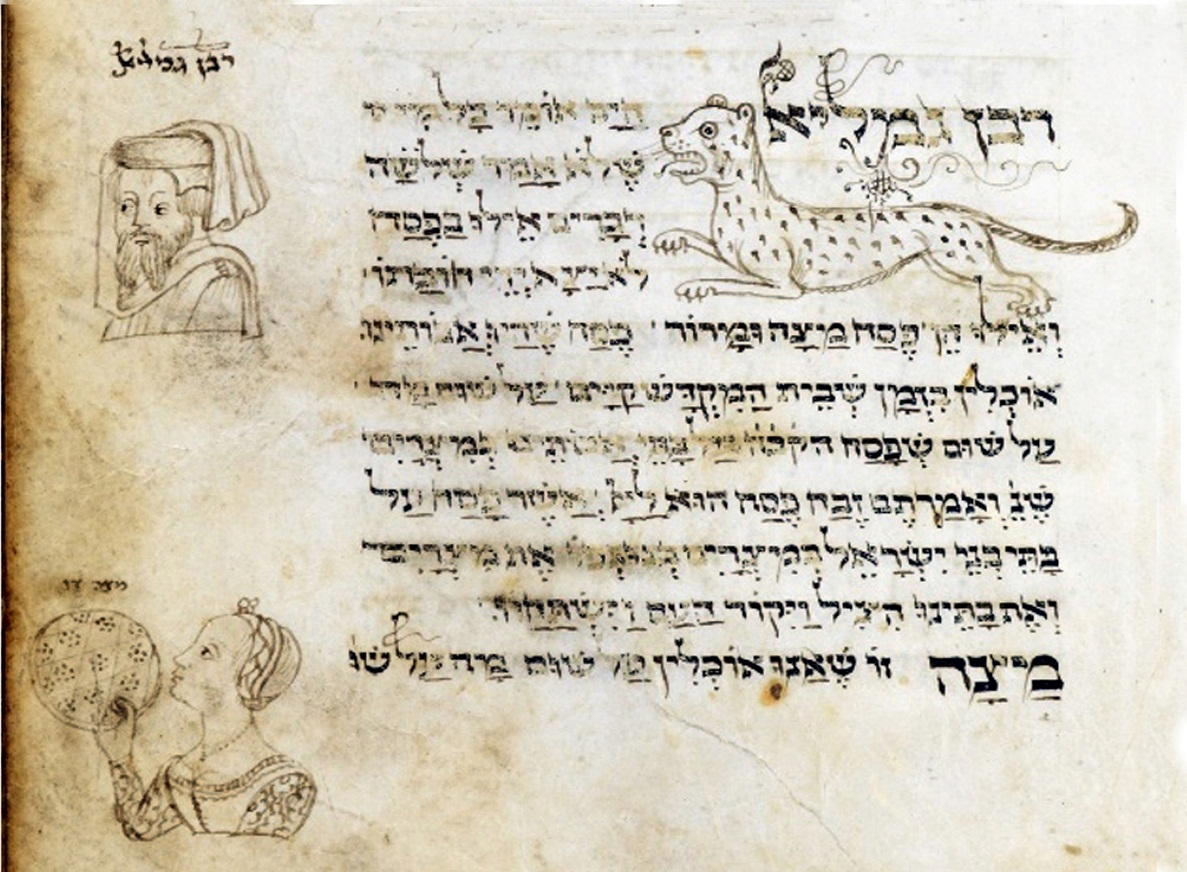 רבן גמליאל
רבן גמליאל היה אומר כל מי
שלא אמר שלשה
דברים אילו בפסח
לא יצא ידי חובתו
ואילו הן פסח מצה ומרור פסח שהיו אבותינו
אוכלין בזמן שבית המקדש קיים על שום מה
על שום שפסח הקבה על בתי אבותינו במצרים
שנ ואמרתם זבח פסח הוא ליי אשר פסח על
בתי בני ישראל במצרים בנגפו את מצרים
ואת בתינו הציל ויקוד העם וישתחוו
מצה זו
מצה זו שאנו אוכלין על שום מה על שו